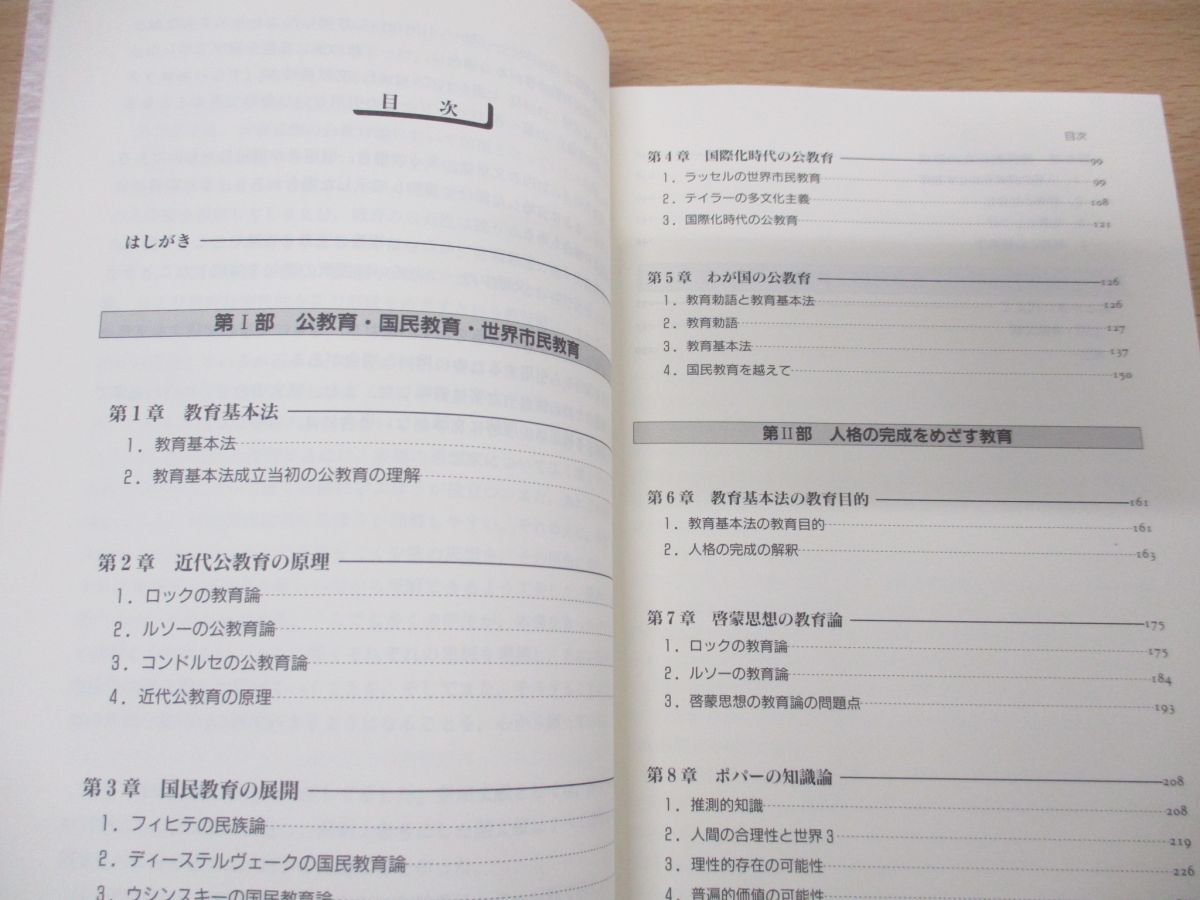 目次
はしがき
第Ⅰ部 公教育・国民教育・世界市民教育
第1章 教育基本法
1. 教育基本法
2. 教育基本法成立当初の公教育の理解
第2章 近代公教育の原理
1. ロックの教育論
2. ルソーの公教育論
3. コンドルセの公教育論
4. 近代公教育の原理
第3章 国民教育の展開
1. フィヒテの民族論
2. ディーステルヴェークの国民教育論
3. ウシンスキーの国民教育論
目次
第4章 国際化時代の公教育 99
1. ラッセルの世界市民教育 99
2. テイラーの多文化主義 108
3. 国際化時代の公教育 121
第5章 わが国の公教育 126
1. 教育勅語と教育基本法 126
2. 教育勅語 127
3. 教育基本法 137
4. 国民教育を越えて 150
第Ⅱ部 人格の完成をめざす教育
第6章 教育基本法の教育目的 161
1. 教育基本法の教育目的 161
2. 人格の完成の解釈 163
第7章 啓蒙思想の教育論 175
1. ロックの教育論 175
2. ルソーの教育論 184
3. 啓蒙思想の教育論の問題点 193
第8章 ポパーの知識論 208
1. 推測的知識 208
2. 人間の合理性と世界3 219
3. 理性的存在の可能性 226
4. 普遍的価値の可能性